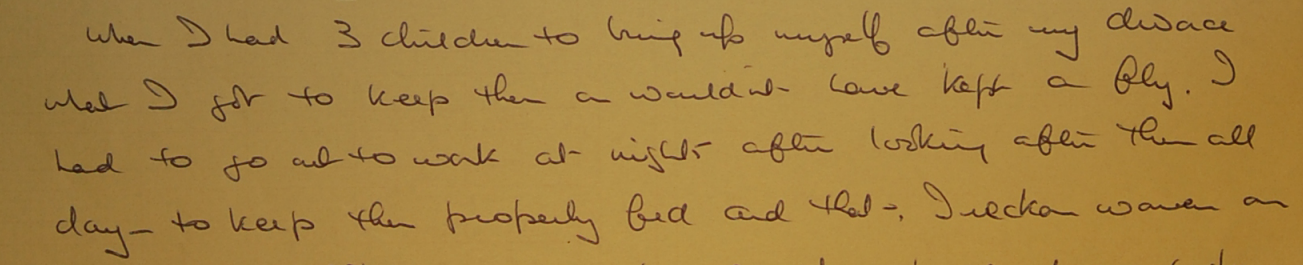 when I had 3 children to bring up myself after my divorce
what I got to keep them on wouldn't have kept a fly. I
had to go out to work at nights after looking after them all
day - to keep them properly fed and that -. I reckon women on